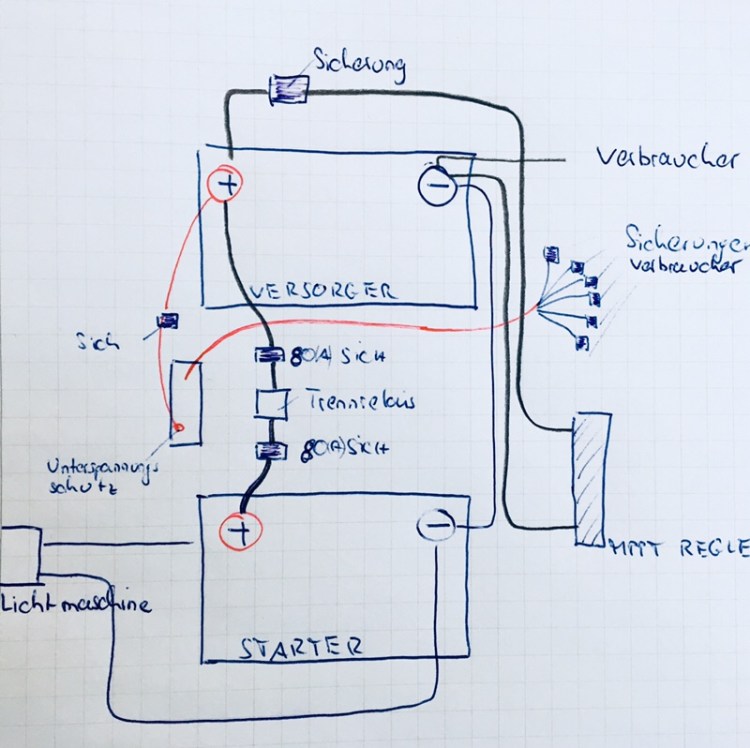 Sicherung
+
−
Verbraucher
Sicherungen
verbraucher
VERSORGER
Sich
80(A) Sich
Trennrelais
80(A) Sich
Unterspannungs
schutz
+
−
MPPT REGLE
Lichtmaschine
STARTER